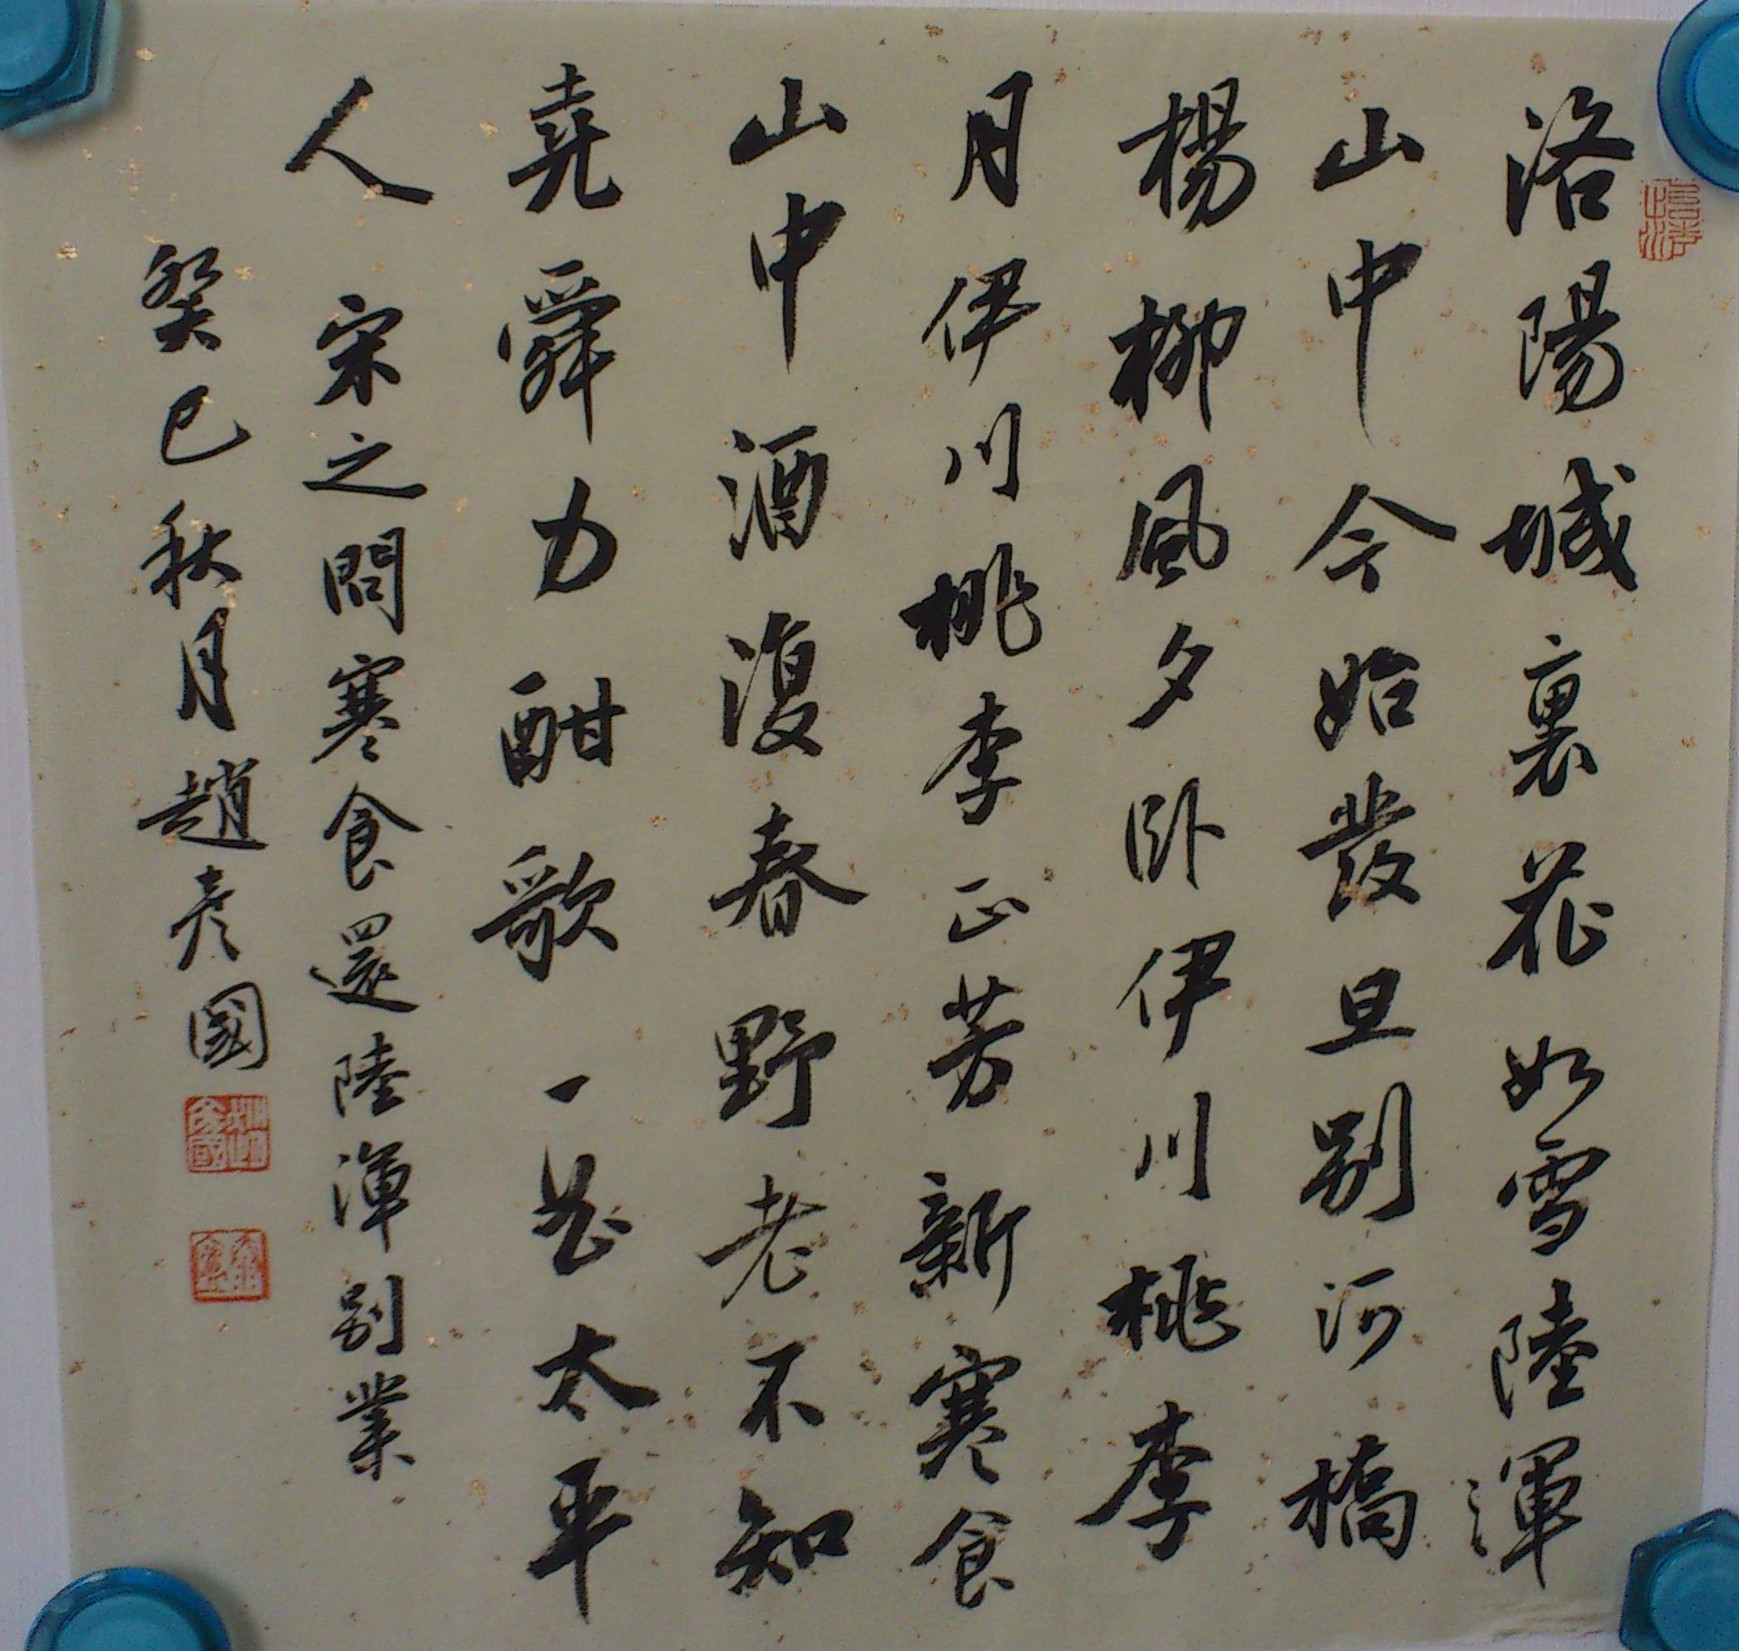 洛陽城裏花如雪陸渾
山中今始發旦別河橋
楊柳風夕卧伊川桃李
月伊川桃李正芳新寒食
山中酒復春野老不知
堯舜力酣歌一曲太平
人 宋之問寒食還陸渾別業
癸巳秋月趙彦國
趙彦國